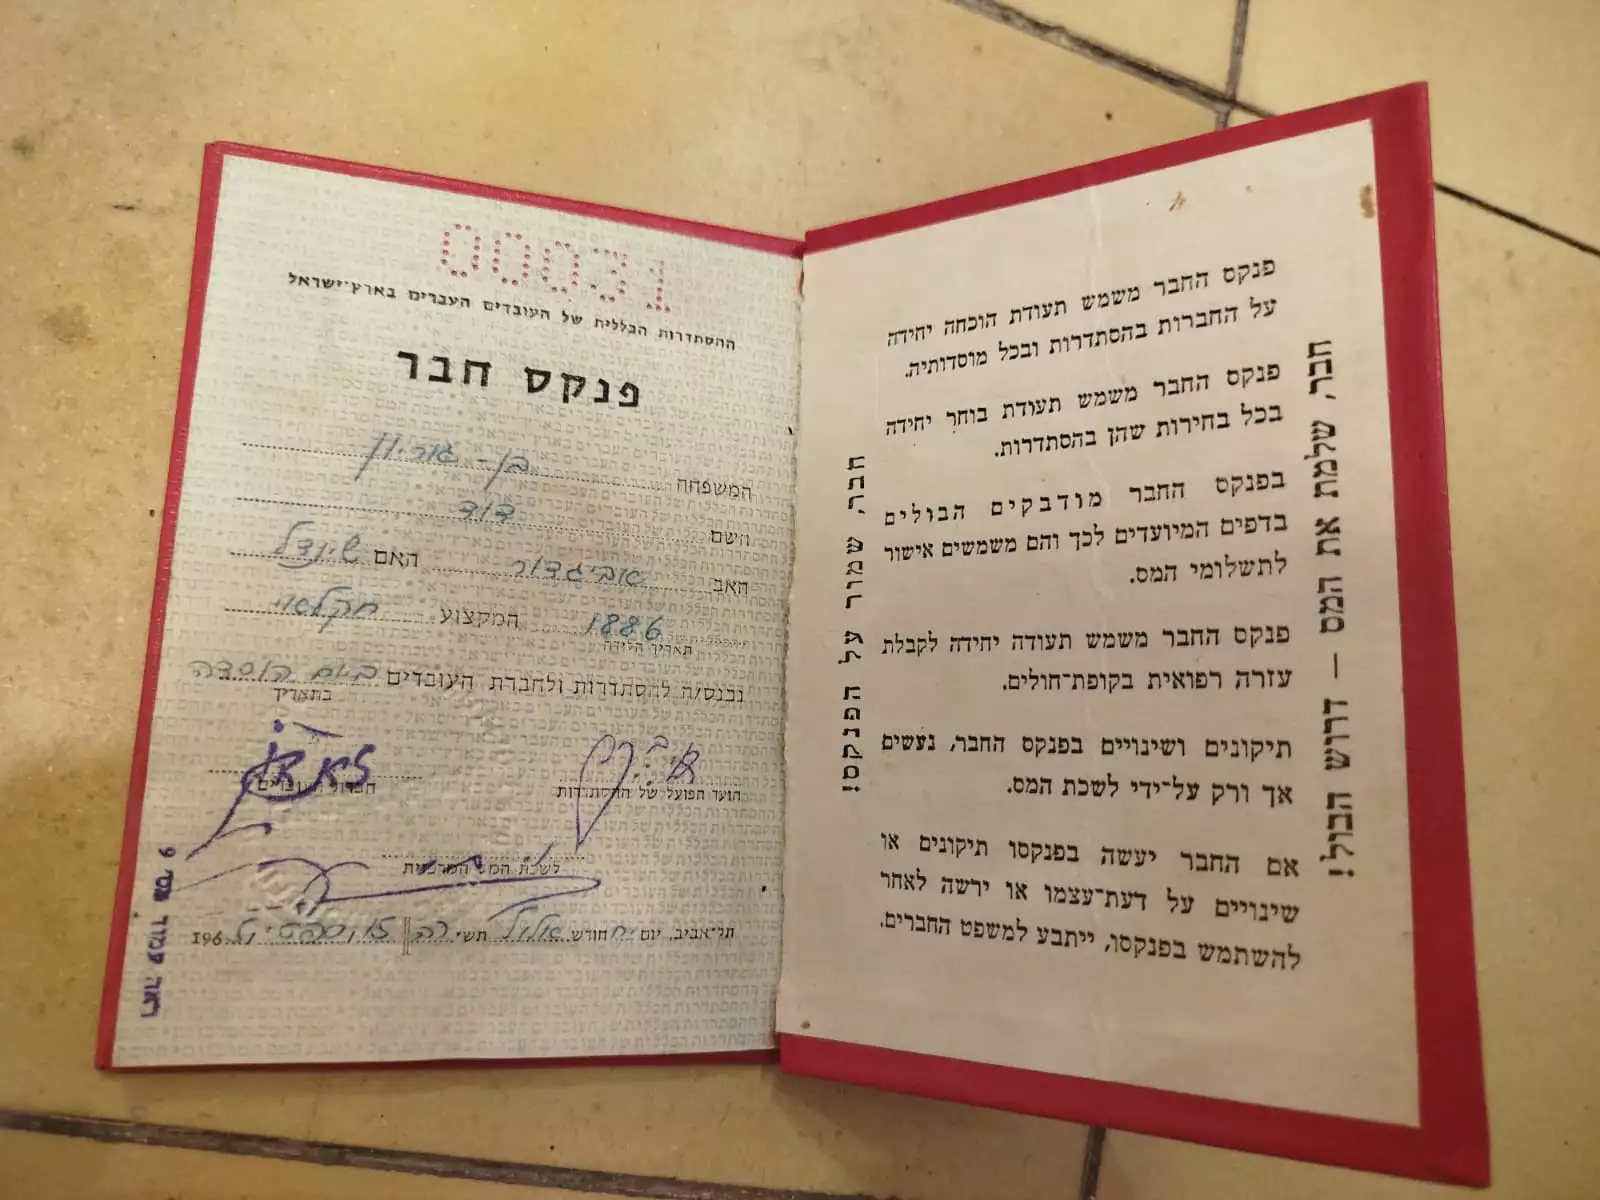 00031
ההסתדרות הכללית של העובדים העברים בארץ־ישראל
פנקס חבר
המשפחה בן-גוריון
השם דוד
האב אביגדור האם שינדל
1886 המקצוע חקלאי
תאריך הלידה
נכנס/ה להסתדרות ולחברת העובדים ביום הוסדה
בתאריך
הועד הפועל של ההסתדרות חברת העובדים
לשכת המס המרכזית
תל־אביב, יום יח חודש אלול תשי כה 196
ראה עמוד מס 9
חבר, שמור על הפנקס!
פנקס החבר משמש תעודת הוכחה יחידה
על החברות בהסתדרות ובכל מוסדותיה.
פנקס החבר משמש תעודת בוחר יחידה
בכל בחירות שהן בהסתדרות.
בפנקס החבר מודבקים הבולים
בדפים המיועדים לכך והם משמשים אישור
לתשלומי המס.
פנקס החבר משמש תעודה יחידה לקבלת
עזרה רפואית בקופת־חולים.
תיקונים ושינויים בפנקס החבר, נעשים
אך ורק על־ידי לשכת המס.
אם החבר יעשה בפנקסו תיקונים או
שינויים על דעת־עצמו או ירשה לאחר
להשתמש בפנקסו, ייתבע למשפט החברים.
חבר, שלמת את המס – דרוש הבול!